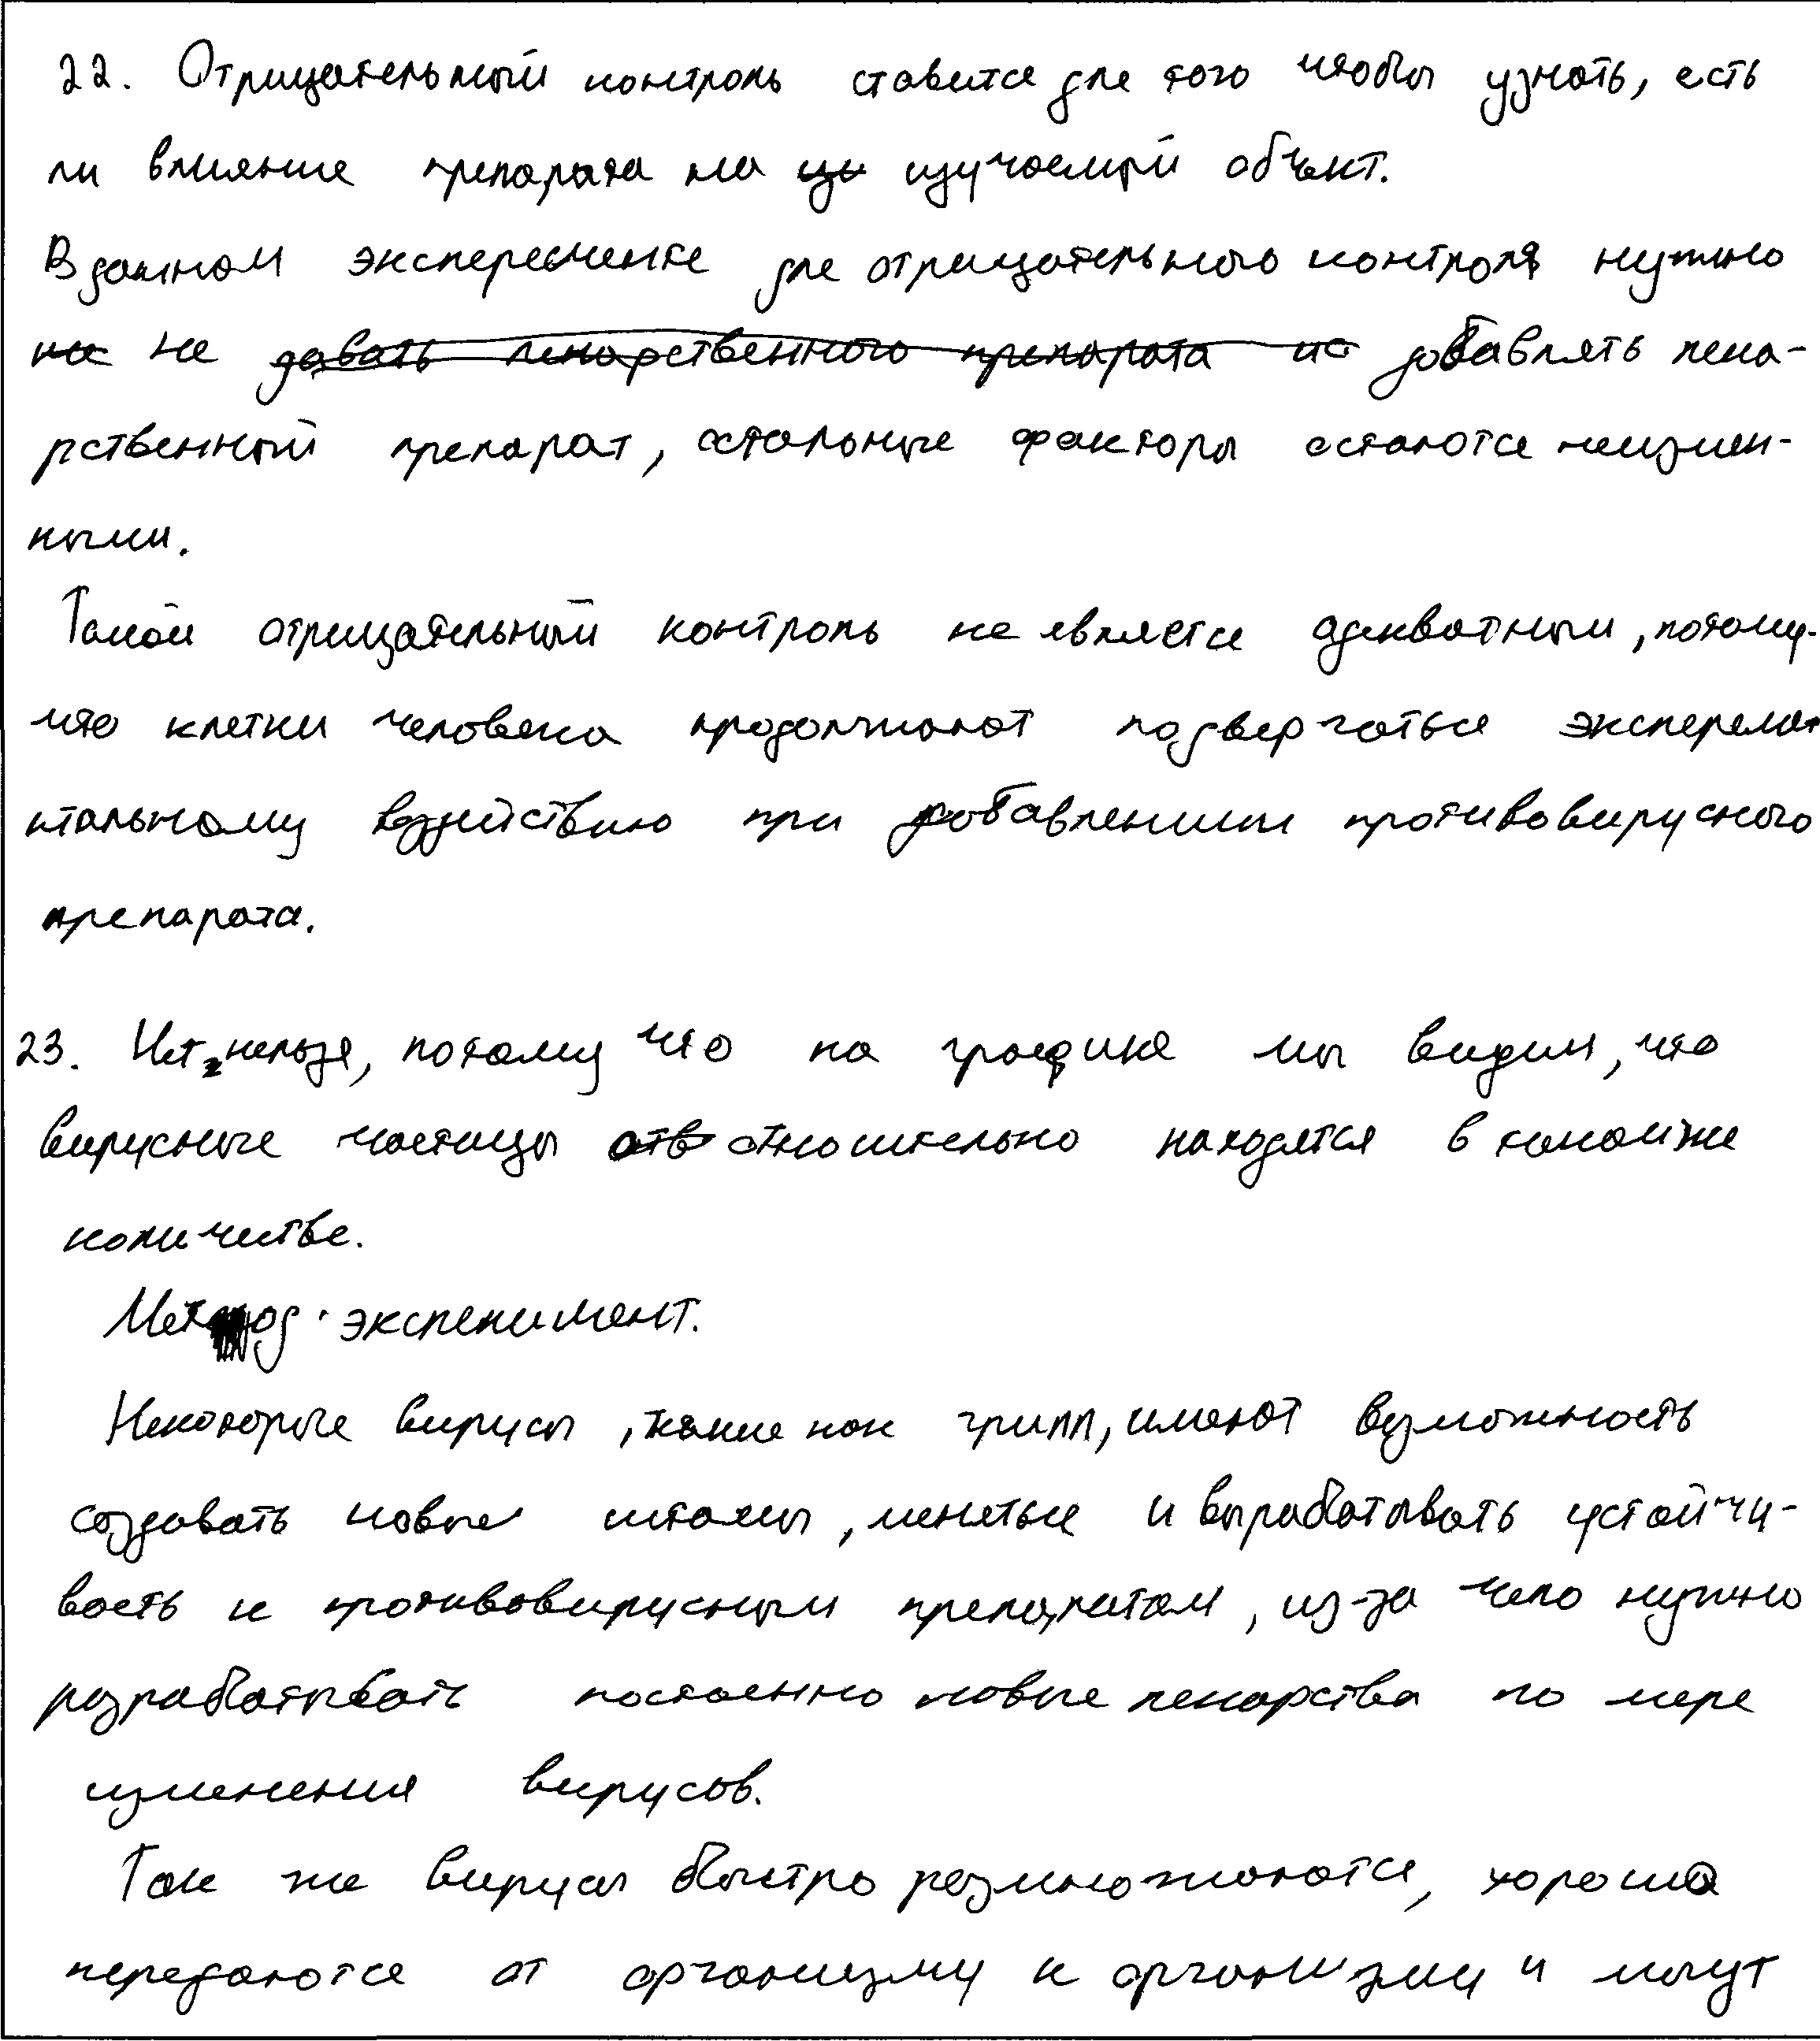 22. Отрицательный контроль ставится для того чтобы узнать, есть
ли влияние препарата на изучаемый объект.
В данном эксперементе для отрицательного контроля нужно
не добавлять лека-
рственный препарат, остальные факторы остаются неизмен-
ными.
Такой отрицательный контроль не является адекватным, потому-
что клетки человека продолжают подвергаться эксперемен
нтальному воздействию при добавлении противовирусного
препарата.
23. Нет, нельзя, потому что на графике мы видим, что
вирусные частицы относительно находятся в таком же
количестве.
Метод: эксперимент.
Некоторые вирусы, такие как грипп, имеют возможность
создавать новые штамы, меняться и вырабатывать устойчи-
вость к противовирусным препаратам, из-за чего нужно
разрабатывать постоянно новые лекарства по мере
изменения вирусов.
Так же вирусы быстро размножаются, хорошо
передаются от организму к организму и могут